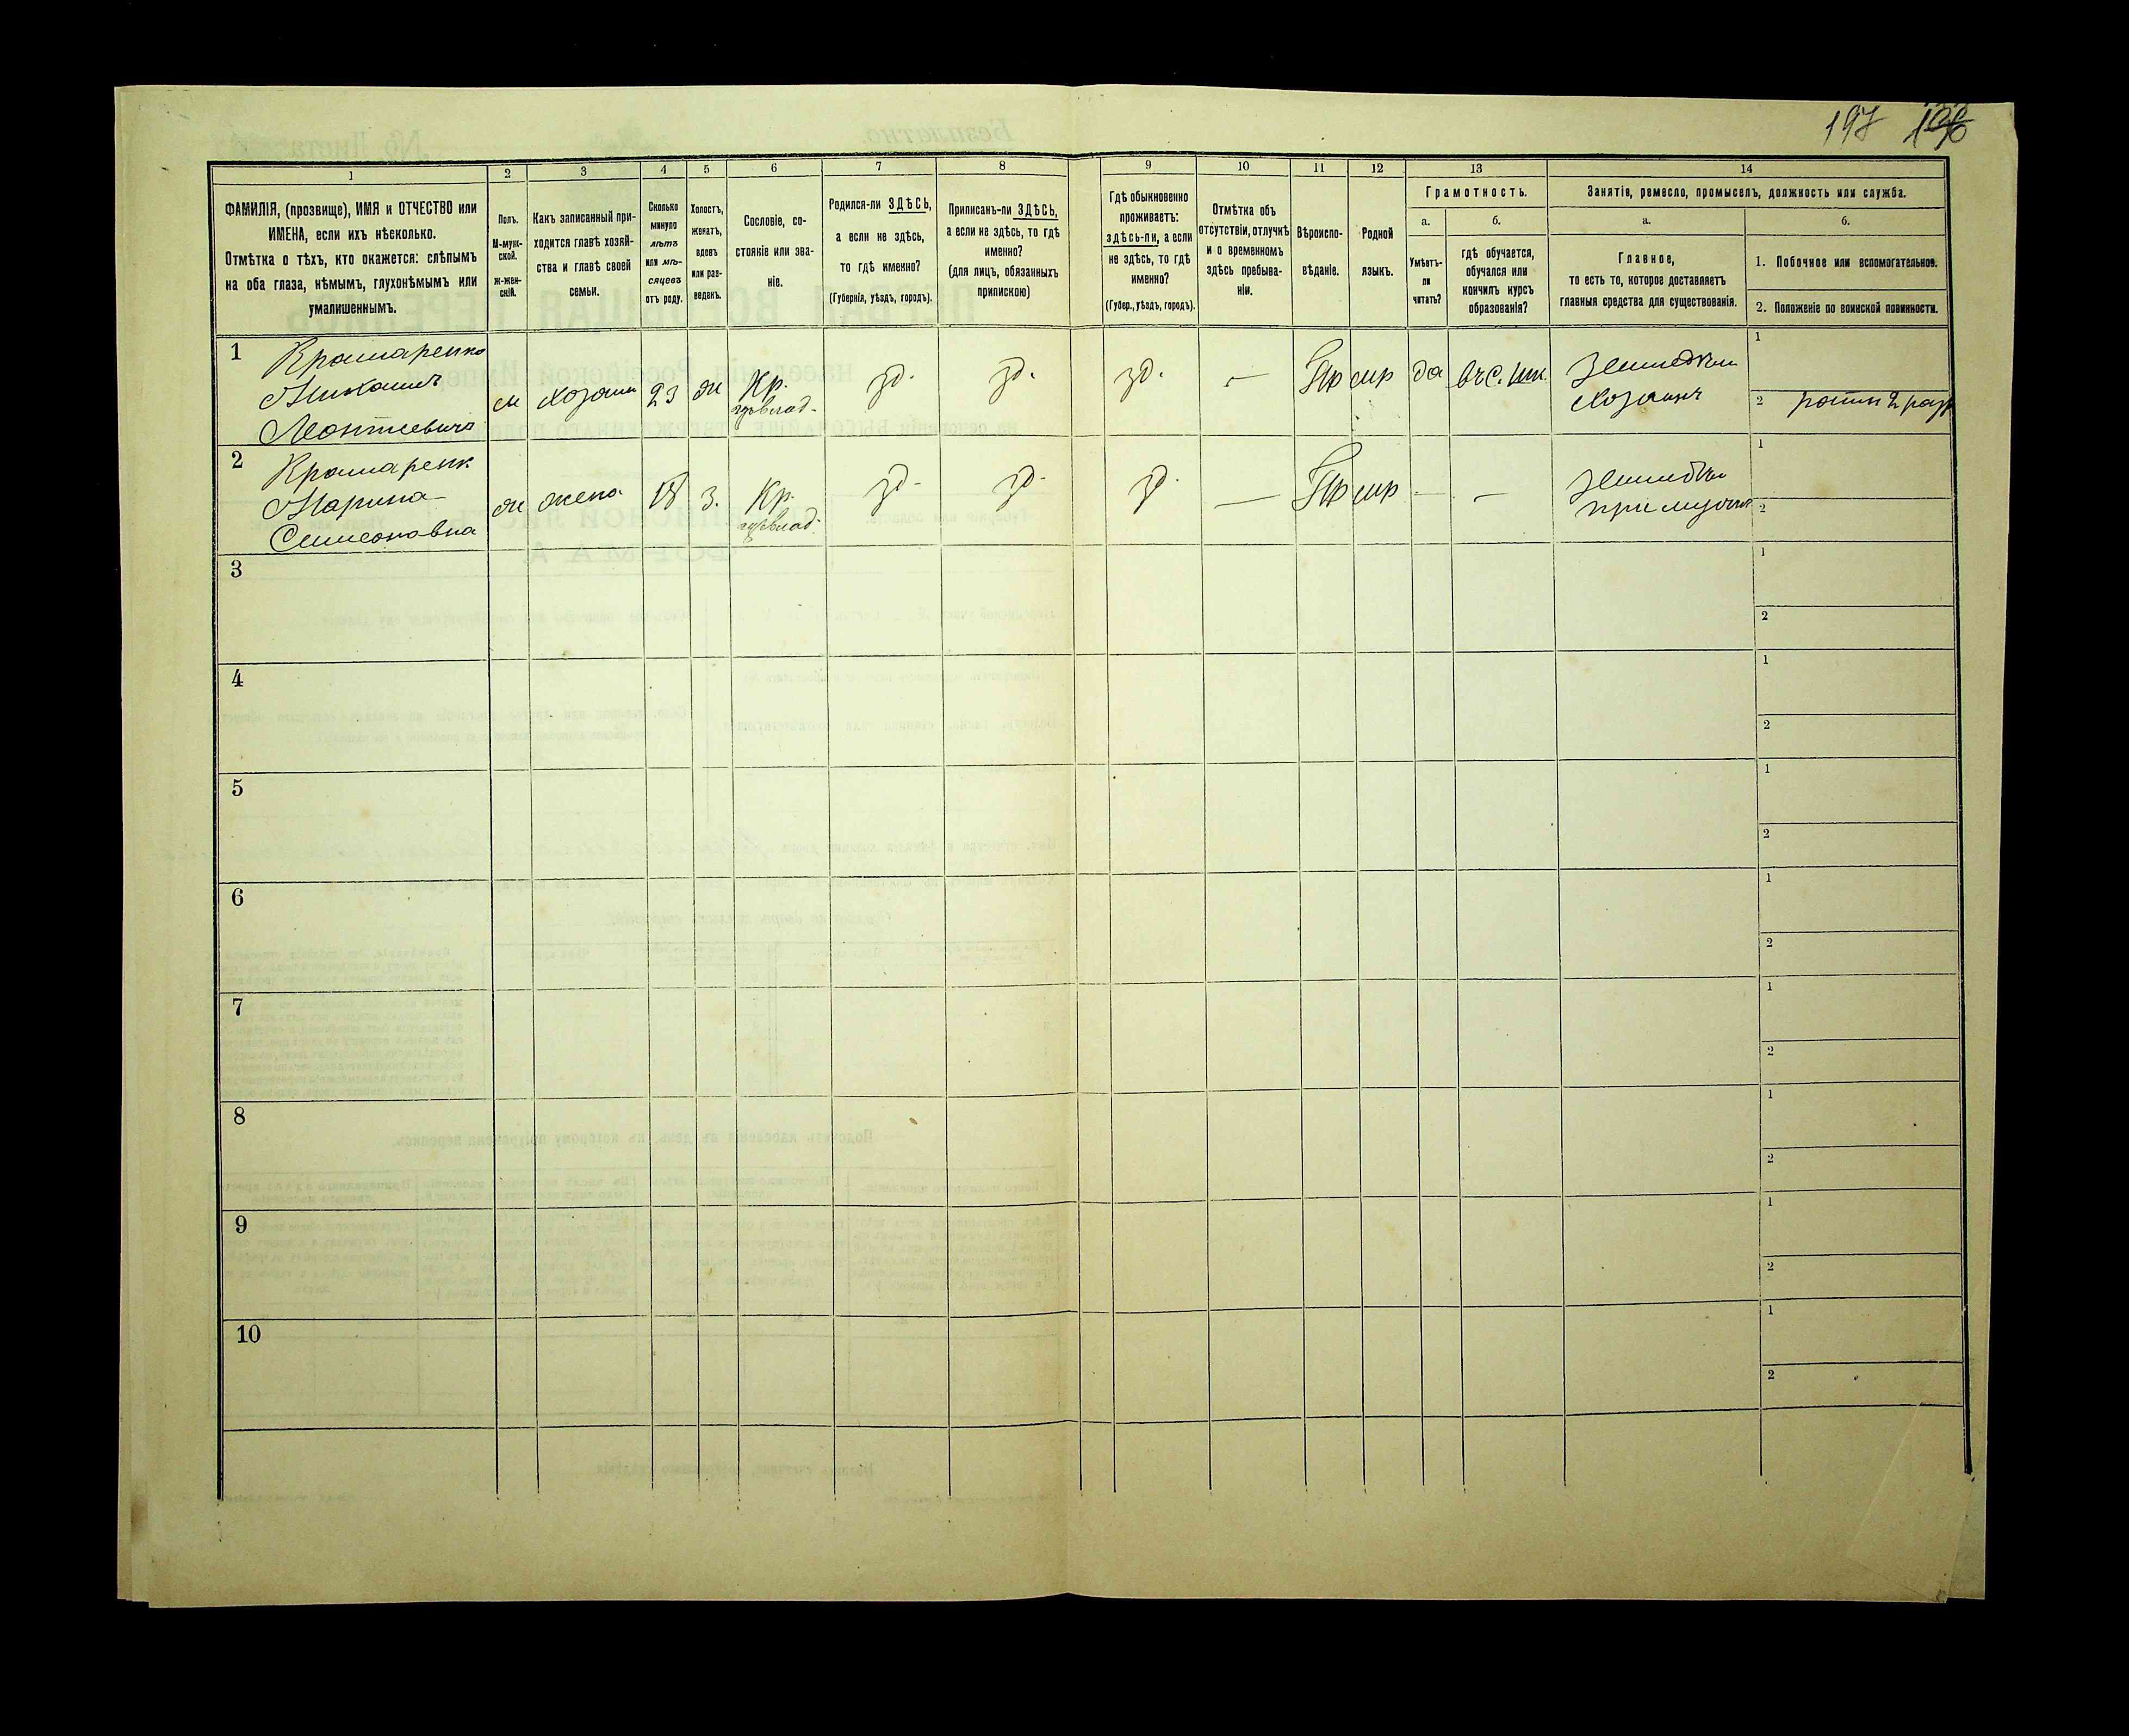 197 196
1 2 3 4 5 6 7 8 9 10 11 12 13 14
ФАМИЛІЯ, (прозвище), ИМЯ и ОТЧЕСТВО или
ИМЕНА, если ихъ нѣсколько.
Отмѣтка о тѣхъ, кто окажется: слѣпымъ
на оба глаза, нѣмымъ, глухонѣмымъ или
умалишеннымъ.
Полъ.
М-муж-
ской.
ж-жен-
скій.
Какъ записанный при-
ходится главѣ хозяй-
ства и главѣ своей
семьи.
Сколько
минуло
лѣтъ
или мѣ-
сяцевъ
отъ роду.
Холостъ,
женатъ,
вдовъ
или раз-
веденъ.
Сословіе, со-
стояніе или зва-
ніе.
Родился-ли ЗДѢСЬ,
а если не здѣсь,
то гдѣ именно?
(Губернія, уѣздъ, городъ).
Приписанъ-ли ЗДѢСЬ,
а если не здѣсь, то гдѣ
именно?
(для лицъ, обязанныхъ
припискою)
Гдѣ обыкновенно
проживаетъ:
здѣсь-ли, а если
не здѣсь, то гдѣ
именно?
(Губер., уѣздъ, городъ).
Отмѣтка объ
отсутствіи, отлучкѣ
и о временномъ
здѣсь пребыва-
ніи.
Вѣроиспо-
вѣданіе.
Родной
языкъ.
Грамотность.
а.
Умѣетъ-
ли
читать?
б.
гдѣ обучается,
обучался или
кончилъ курсъ
образованія?
Занятіе, ремесло, промыселъ, должность или служба.
а.
Главное,
то есть то, которое доставляетъ
главныя средства для существованія.
б.
1. Побочное или вспомогательное.
2. Положеніе по воинской повинности.
1
Крамаренко
Леонтиевичъ
м хозяин 23 ж Кр. зд. зд. зд. — Пр мр да
Хозяинъ
1
2 ратн 2 разр
2
Крамаренк
Марина
Симеоновна
ж жена 18 з. Кр. зд. зд. зд. — Пр мр — —
1
2
3
1
2
4
1
2
5
1
2
6
1
2
7
1
2
8
1
2
9
1
2
10
1
2